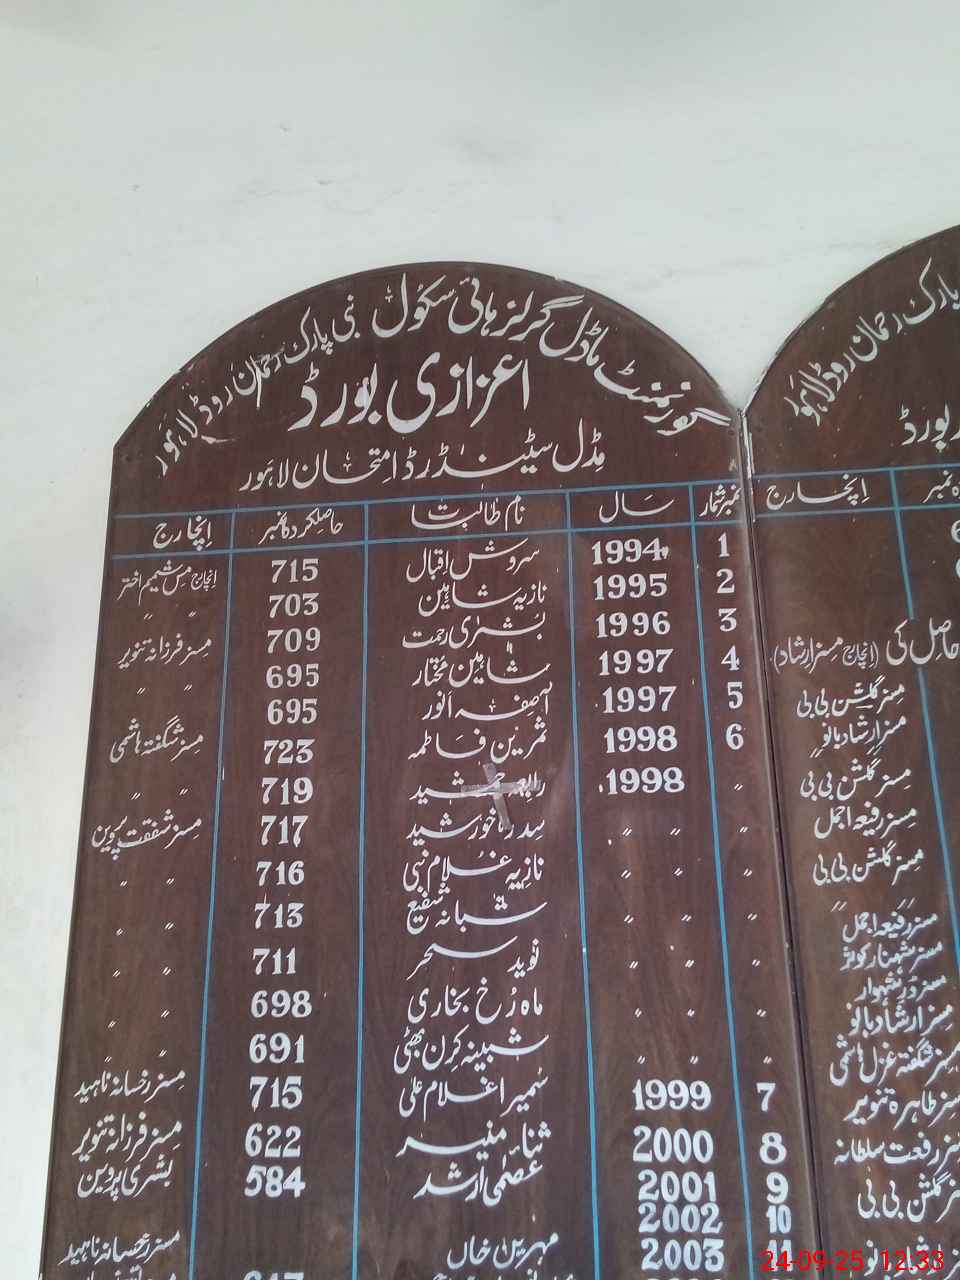 گورنمنٹ ماڈل گرلز ہائی سکول نبی پارک رحمان روڈ لاہور
اعزازی بورڈ
مڈل سٹینڈرڈ امتحان لاہور
نمبر شمار سال نام طالبات حاصلکردہ نمبر انچارج
1 1994 سروش اقبال 715 انچارج مس شمیم اختر
2 1995 نازیہ شاہین 703 〃 〃
3 1996 بشریٰ رحمت 709 مسز فرزانہ تنویر
4 1997 شاہین مختار 695 〃 〃
5 1997 آصفہ انور 695
6 1998 ثمرین فاطمہ 723 مسز شگفتہ ہاشمی
〃 1998 رابعہ جمشید 719 〃 〃
〃 〃 〃 سدرہ خورشید 717 مسز شفقت پروین
〃 〃 〃 نازیہ غلام نبی 716 〃 〃
〃 〃 〃 شبانہ شفیع 713 〃 〃
〃 〃 〃 نوید سحر 711 〃 〃
〃 〃 〃 ماہ رخ بخاری 698 〃 〃
〃 〃 〃 شبینہ کرن بھٹی 691 〃 〃
7 1999 سمیرا غلام علی 715 مسز رخسانہ ناہید
8 2000 ثناء منیر 622 مسز فرزانہ تنویر
9 2001 عصمٰی ارشد 584 بشریٰ پروین
10 2002
11 2003 مہرین خاں مسز رخسانہ ناہید
پارک رحمان روڈ لاہور
بورڈ
نمبر انچارج
حاصل کی (انچارج مسز ارشاد)
مسز گلشن بی بی
مسز ارشاد بانو
مسز گلشن بی بی
مسز رفیعہ اجمل
مسز گلشن بی بی
〃 〃
مسز رفیعہ اجمل
مسز شہناز کوثر
مسز در شہوار
مسز ارشاد بانو
مسز شگفتہ غزل ہاشمی
مسز طاہرہ تنویر
مسز رفعت سلطانہ
مسز گلشن بی بی
24-09-25 12:33